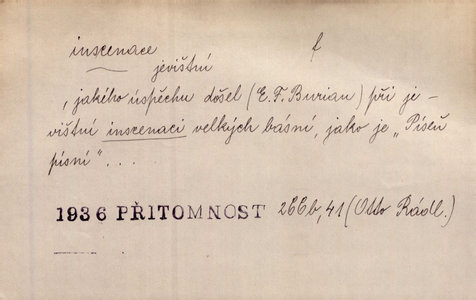 inscenace f
jevištní
, jakého úspěchu došel (E. F. Burian) při je-
vištní inscenaci velkých básní, jako je „Píseň
písní“...
1936 PŘITOMNOST 266b, 41 (Otto Rádl.)